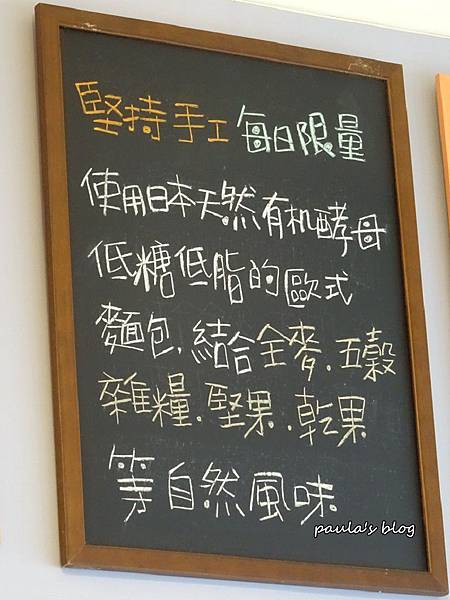 堅持手工 每日限量
使用日本天然有机酵母
低糖低脂的歐式
麵包,結合全麥.五穀
雜糧.堅果.乾果
等自然風味
paula's blog